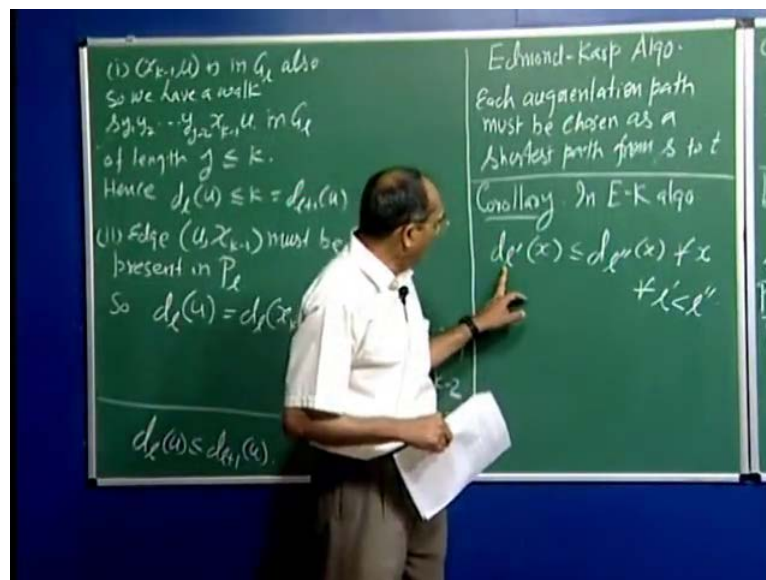 (i) (x_{k-1}, u) is in G_l also
So we have a walk
s y_1 y_2 ... y_{j-2} x_{k-1} u in G_l
of length j ≤ k.
Hence d_l(u) ≤ k = d_{l+1}(u)
(ii) Edge (u, x_{k-1}) must be
present in P_l
So d_l(u) = d_l(x_k
k-2
d_l(u) ≤ d_{l+1}(u).
Edmond-Karp Algo.
Each augmentation path
must be chosen as a
shortest path from s to t
Corollary. In E-K algo
d_{l'}(x) ≤ d_{l''}(x) ∀ x
∀ l' < l''